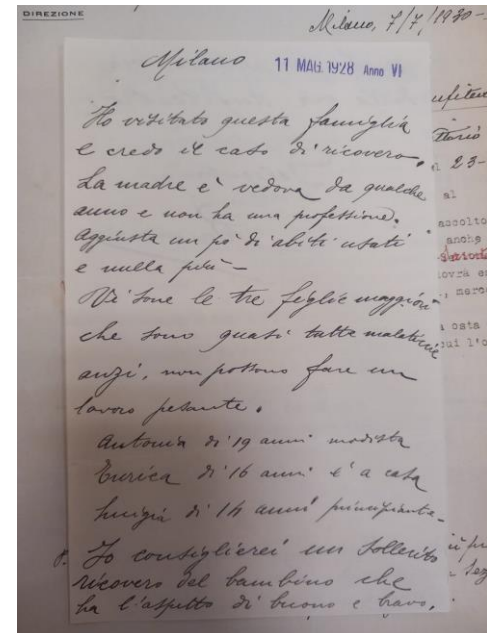 DIREZIONE
Milano, 7/7/1930-
Milano 11 MAG. 1928 Anno VI
Ho visitato questa famiglia
e credo il caso di ricovero.
La madre è vedova da qualche
anno e non ha una professione.
Aggiusta un pò di abiti usati
e nulla più -
Vi sono le tre figlie maggiori
che sono quasi tutte malaticcie
anzi, non possono fare un
lavoro pesante.
Antonia di 19 anni modista
Enrica di 16 anni è a casa
Luigia di 14 anni principiante-
Io consiglierei un sollecito
ricovero del bambino che
ha l'aspetto di buono e bravo.
23-
al
ascolto
anche
ovrà
merc
osta
cui l'o